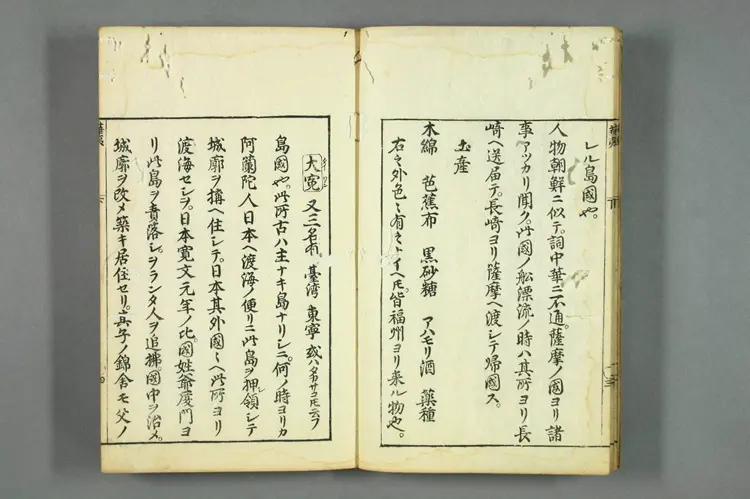 レル島國也。
人物朝鮮ニ似テ。詞中華ニ不通。薩摩ノ國ヨリ諸
事アツカリ聞ク。此國ノ舩漂流ノ時ハ其所ヨリ長
崎ヘ送届テ。長崎ヨリ薩摩ヘ渡シテ帰國ス。
土産
木綿 芭蕉布 黒砂糖 アハモリ酒 藥種
右之外色々有之トイヘ𪜈。皆福州ヨリ来ル物也。
大寃 又三名有。臺湾 東寧 或ハタカサコ𪜈云フ
島國也。此所古ハ主ナキ島ナリシニ。何ノ時ヨリカ
阿蘭陀人日本ヘ渡海ノ便リニ此島ヲ押領シテ
城廓ヲ搆ヘ住シテ。日本其外國々ヘ此所ヨリ
渡海セシヲ。日本寛文元年ノ比。國姓爺厦門ヨ
リ此島ヲ責落シ。ヲランタ人ヲ追拂。國中ヲ治メ。
城廓ヲ改メ築キ居住セリ。其子ノ錦舎モ父ノ